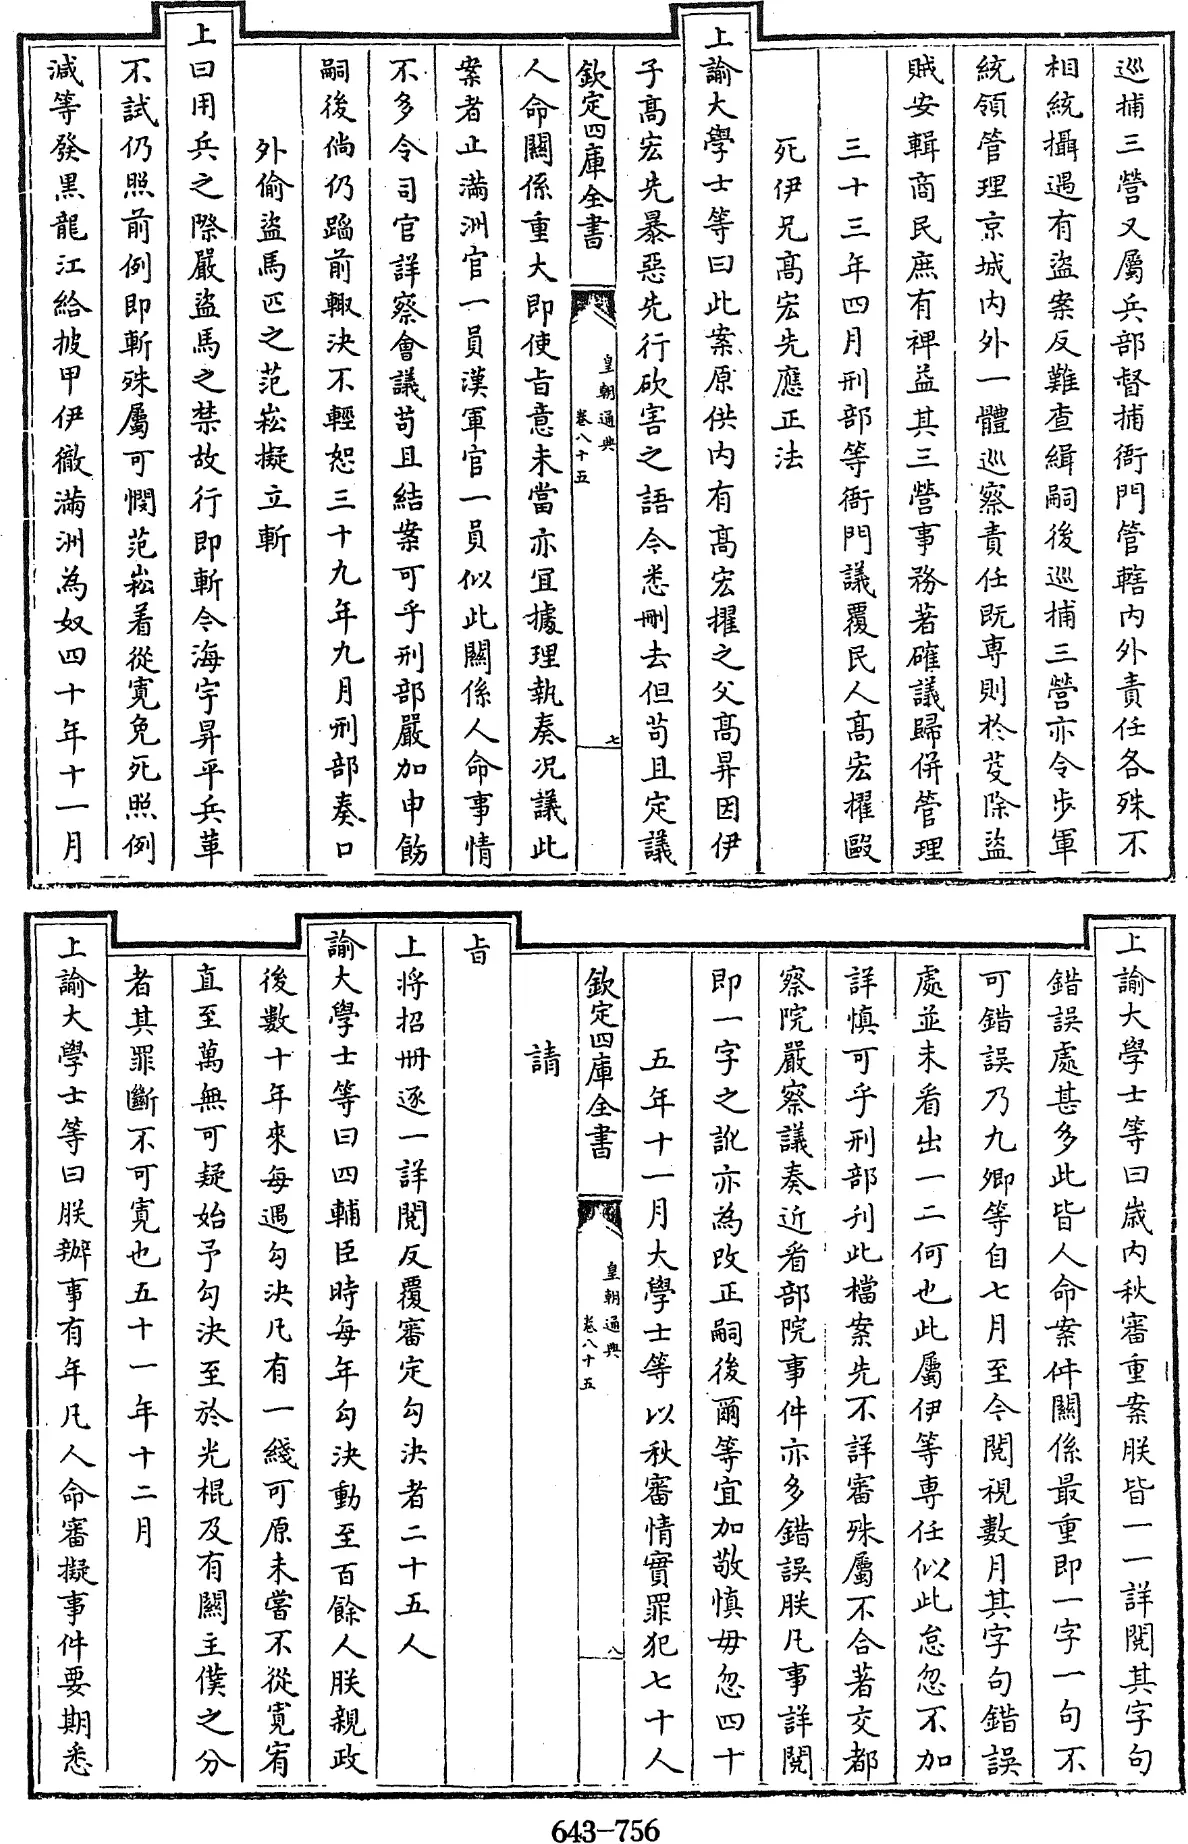 巡捕三營又屬兵部督捕衙門管轄内外責任各殊不
相統攝遇有盜案反難查緝嗣後巡捕三營亦令步軍
統領管理京城内外一體巡察責任既専則於芟除盜
賊安輯商民庶有禆益其三營事務若確議歸併管理
三十三年四月刑部等衙門議覆民人髙宏擢毆
死伊兄髙宏先應正法
上諭大學士等曰此案原供内有髙宏擢之父髙昇因伊
子髙宏先暴惡先行砍害之語今悉刪去但苟且定議
欽定四庫全書
皇朝通典
卷八十五
七
人命關係重大即使㫖意未當亦宜據理執奏况議此
案者止滿洲官一員漢軍官一員似此關係人命事情
不多令司官詳察㑹議苟且結案可乎刑部嚴加申飭
嗣後倘仍蹈前轍決不輕恕三十九年九月刑部奏口
外偷盜馬匹之范崧擬立斬
上曰用兵之際嚴盜馬之禁故行即斬今海宇昇平兵革
不試仍照前例即斬殊屬可憫范崧着從寛免死照例
減等發黒龍江給披甲伊徹滿洲為奴四十年十一月
上諭大學士等曰歲内秋審重案朕皆一一詳閲其字句
錯誤處甚多此皆人命案件關係最重即一字一句不
可錯誤乃九卿等自七月至今閲視數月其字句錯誤
處並未看出一二何也此屬伊等専任似此怠忽不加
詳慎可乎刑部刋此檔案先不詳審殊屬不合著交都
察院嚴察議奏近看部院事件亦多錯誤朕凡事詳閲
即一字之訛亦為改正嗣後爾等宜加敬慎毋忽四十
五年十一月大學士等以秋審情實罪犯七十人
欽定四庫全書
皇朝通典
卷八十五
八
請
㫖
上將招冊逐一詳閲反覆審定勾決者二十五人
諭大學士等曰四輔臣時每年勾決動至百餘人朕親政
後數十年來每遇勾決凡有一綫可原未嘗不從寛宥
直至萬無可疑始予勾決至於光棍及有關主僕之分
者其罪斷不可寛也五十一年十二月
上諭大學士等曰朕辦事有年凡人命審擬事件要期悉
643-756